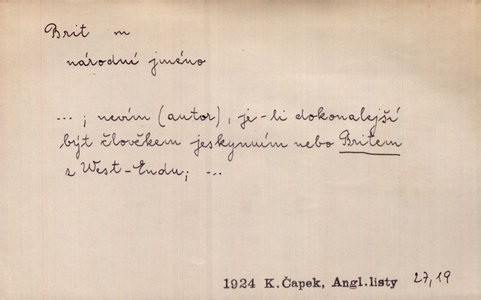 Brit m
národní jméno
...; nevím (autor), je-li dokonalejší
být člověkem jeskynním nebo Britem
z West-Endu; ...
1924 K.Čapek, Angl.listy 27,19